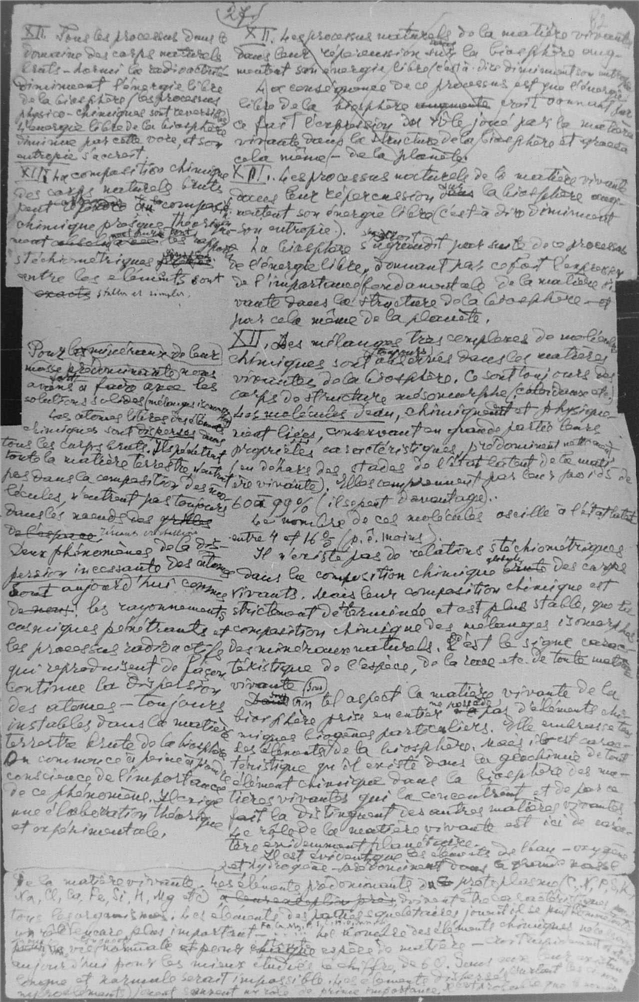 (27)
XII. Tous les processus dans le
domaine des corps naturels
bruts – hormis la radioactivité
diminuent l'énergie libre
de la biosphère (les processus
physico-chimiques sont réversibles)
L'énergie libre de la biosphère
diminue par cette voie, et son
entropie s'accroît.
XIII. La composition chimique
des corps naturels bruts
peut
chimique presque théorique
stéchiométriques
entre les éléments sont
Pour les minéraux de leur
masse prédominante nous
avons à faire avec les
solutions solides
Les atomes libres des éléments
chimiques sont dispersés dans
tous les corps bruts. Ils pénètrent
toute la matière terrestre n'entrant
pas dans la composition des mo-
lécules, n'entrent pas toujours
dans les nœuds des grilles
de l'espace
Deux phénomènes de la dis-
persion incessante des atomes
sont aujourd'hui connus
les rayonnements
cosmiques pénétrants et
les processus radioactifs
qui reproduisent de façon
continue la dispersion
des atomes – toujours
instables dans la matière
terrestre brute de la biosphère
On commence à peine à prendre
conscience de l'importance
de ce phénomène. Il exige
une élaboration théorique
et expérimentale.
XII. Les processus naturels de la matière vivante
dans leur répercussion sur la biosphère aug-
mentent son énergie libre (c'est à dire diminuent son entropie
La conséquence de ce processus est que l'énergie
libre de la biosphère augmente
ce fait l'expression du rôle joué par la matière
vivante dans la structure de la biosphère et
cela même – de la planète.
XII. Les processus naturels de la matière vivante
dans leur répercussion dans la biosphère aug-
mentent son énergie libre (c'est à dire diminuent
son entropie).
La biosphère s'agrandit par suite de ce processus
de l'énergie libre, donnant par ce fait l'expression
de l'importance fondamentale de la matière vi-
vante dans la structure de la biosphère – et
par cela même de la planète.
XIII. Des mélanges très complexes de molécules
chimiques sont toujours observés dans les matières
vivantes de la biosphère. Ce sont toujours des
corps de structure mésomorphe (colloïdaux etc.)
Les molécules d'eau, chimiquement et physique-
ment liées, conservant en grande partie leurs
propriétés caractéristiques, prédominent nettement
(en dehors des stades de l'état latent de la mati-
ère vivante). Elles comprennent par leur poids de
60 à 99% (il se peut davantage).
Le nombre de ces molécules oscille à l'état latent
entre 4 et 16% (p. ê. moins).
Il n'existe pas de relations stéchiométriques
dans la composition chimique des corps
vivants. Mais leur composition chimique est
strictement déterminée et est plus stable, que la
composition chimique des mélanges isomorphes
des minéraux naturels. C'est le signe carac-
téristique de l'espèce, de la race etc. de toute matière
vivante
un tel aspect la matière vivante de la
biosphère prise en entier ne possède pas d'éléments chi-
miques biogènes particuliers. Elle embrasse tous
les éléments de la biosphère. Mais il est carac-
téristique qu'il existe dans la géochimie de tout
élément chimique dans la biosphère des ma-
tières vivantes qui la concentrent et de par ce
fait la distinguent des autres matières vivantes
Le rôle de la matière vivante est ici de carac-
tère évidemment planétaire.
Il est évident que les éléments de l'eau – oxygène
et hydrogène prédominent dans la grande masse
de la matière vivante. Les éléments prédominants du protoplasme (C, N, P, S, K
Na, Cl, Ca, Fe, Si, H, Mg etc)
tous les organismes. Les éléments des parties squelettaires jouent il se peut
un rôle encore plus important
vie normale et pour chaque espèce de matière
aujourd'hui pour les mieux étudiés le chiffre de 60.
longue et normale serait impossible. Les éléments dispersés
jouent souvent un rôle de prime importance